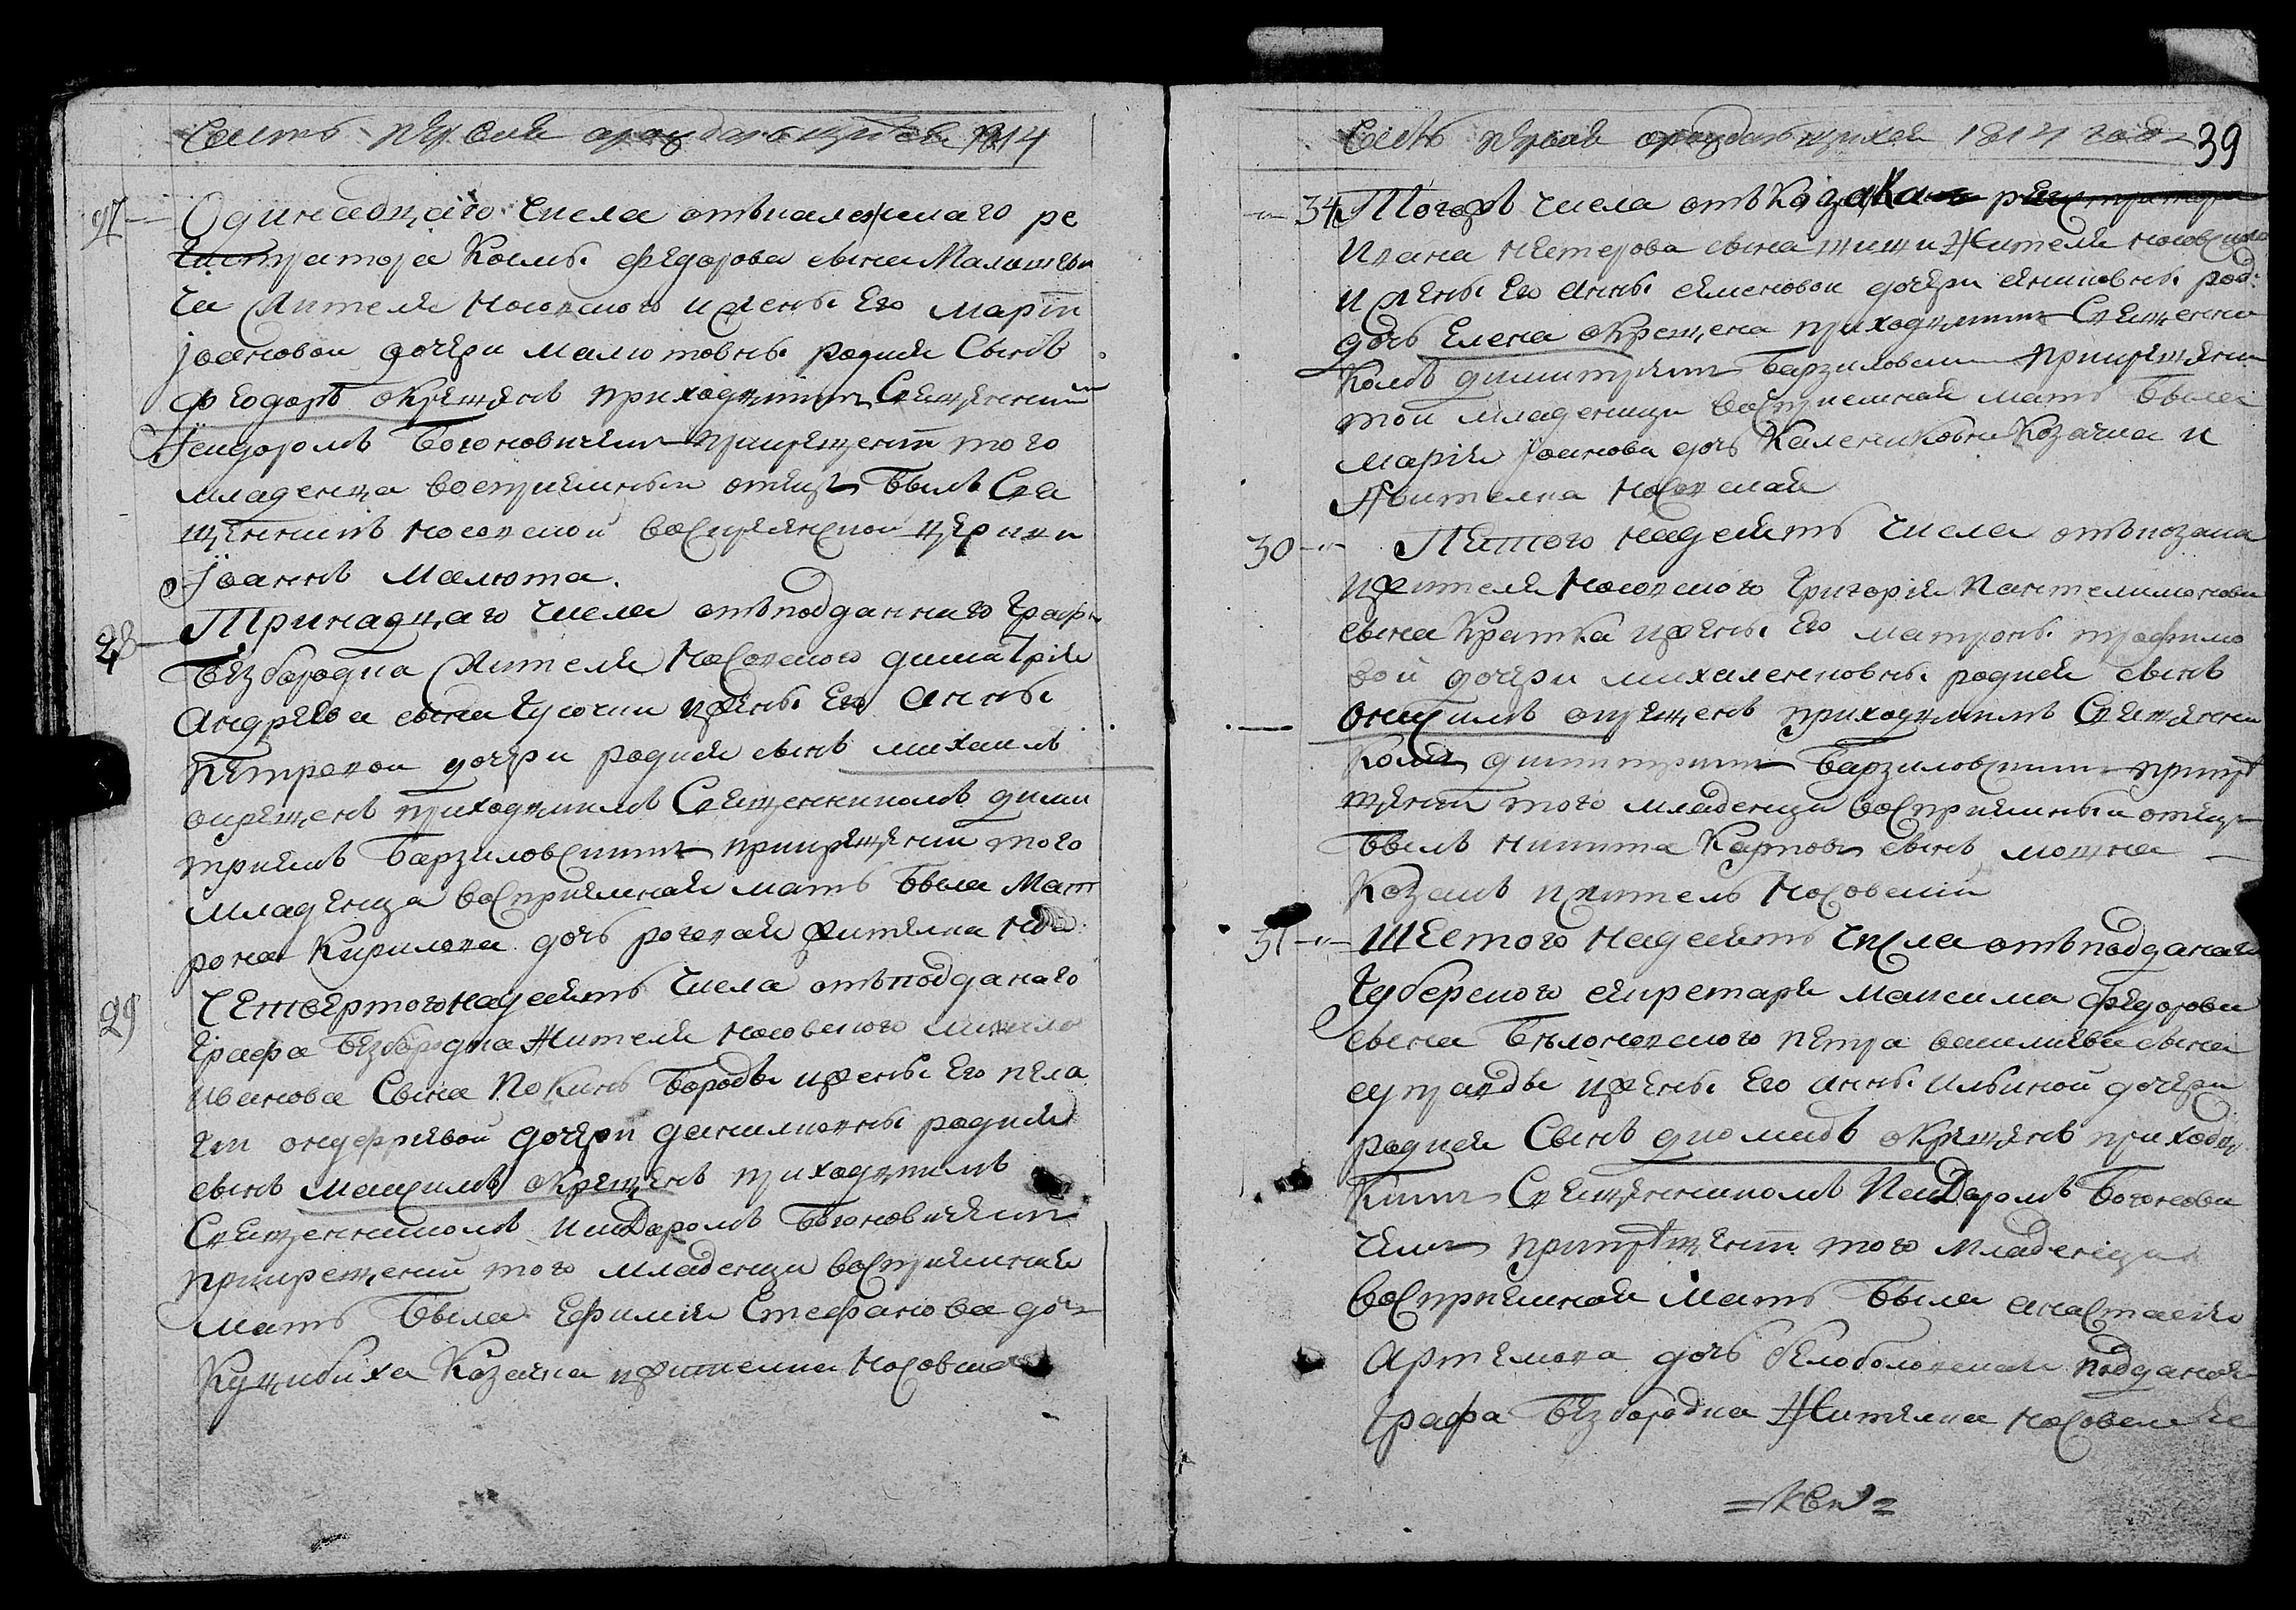 Часть первая о рождающихся 1814
27 Одинадцаго числа отъ колежскаго ре
гистратора Козмы Федорова сына Малюшеви
ча Жителя Носовского и жены Его Маріи
Іоановой дочери Малютовны родися Сынъ
Феодоръ окрещенъ приходцкимъ Священникомъ
Ісидоромъ Богоновичемъ прикрещеніи того
младенца воспріемный отецъ былъ Свя
щенникъ Носовской Воскресенской церкви
Іоаннъ Малюта.
28 Тринадцаго числа отъ подданнаго Графа
Безбородка Жителя Носовского Димитрія
Андреева сына и жены Его Анны
Петровой дочери родися сынъ Михаилъ
окрещенъ приходцкимъ Священникомъ Дими
тріемъ Барзиловскимъ прикрещеніи того
младенца воспріемная мать была Мат
рона Кирилова дочь жителка Носо.
29 Четвертогонадесять числа отъ подданаго
Графа Безбородка Жителя Носовского
Иванова Сына Бороды и жены Его Пела
геи Андреевой дочери Данилковны родися
сынъ Максимъ окрещенъ приходцкимъ
Священникомъ Исидоромъ Богоновичемъ
прикрещеніи того младенца воспріемная
мать была Ефимія Стефанова дочь
Куцибиха Козачка и жителка Носовская
Часть первая о рождающихся 1814 года 39
34 Тогожъ числа отъ Козака регистратора
Ивана Нестерова сына и Жителя Носовского
и жены Его Анны Семеновой дочери род.
дочь Елена окрещена приходцкимъ Священни
комъ Димитріемъ Барзиловским прикрещеніи
той младеници воспріемная мать была
Марія Іоанова дочь Каленикова Козачка и
Жителка Носовская
30 Пятогонадесять числа отъ козака
и жителя Носовского Григорія Пантелимонова
сына Кратка и жены Его Матроны Трофимо
вой дочери Михаленковны родися сынъ
Онисимъ окрещенъ приходцкимъ Священни
комъ Димитріемъ Барзиловскимъ прикре
щеніи того младенци воспріемный отецъ
былъ Никита Карповъ сынъ
Козакъ и житель Носовскій
31 Шестогонадесять числа отъ подданаго
Губерского секретаря Максима Федорова
сына Белоновского Петра Василиева сына
и жены Его Анны Ильиной дочери
родися Сынъ Диомидъ окрещенъ приходц
кимъ Священникомъ Исидоромъ Богонови
чемъ прикрещеніи того младенца
воспріемная мать была Анастасія
Артемова дочь подданая
Графа Безбородка Жителка Носовская